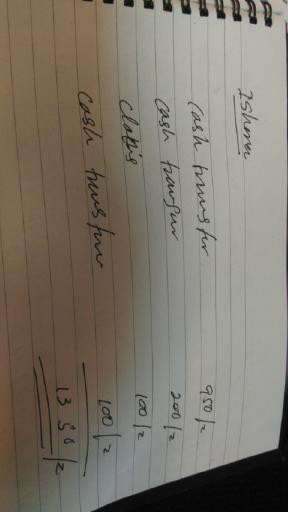 Ishora
cash transfer 950/=
cash transfer 200/=
clothis 100/=
cash transfer 100/=
1350/=